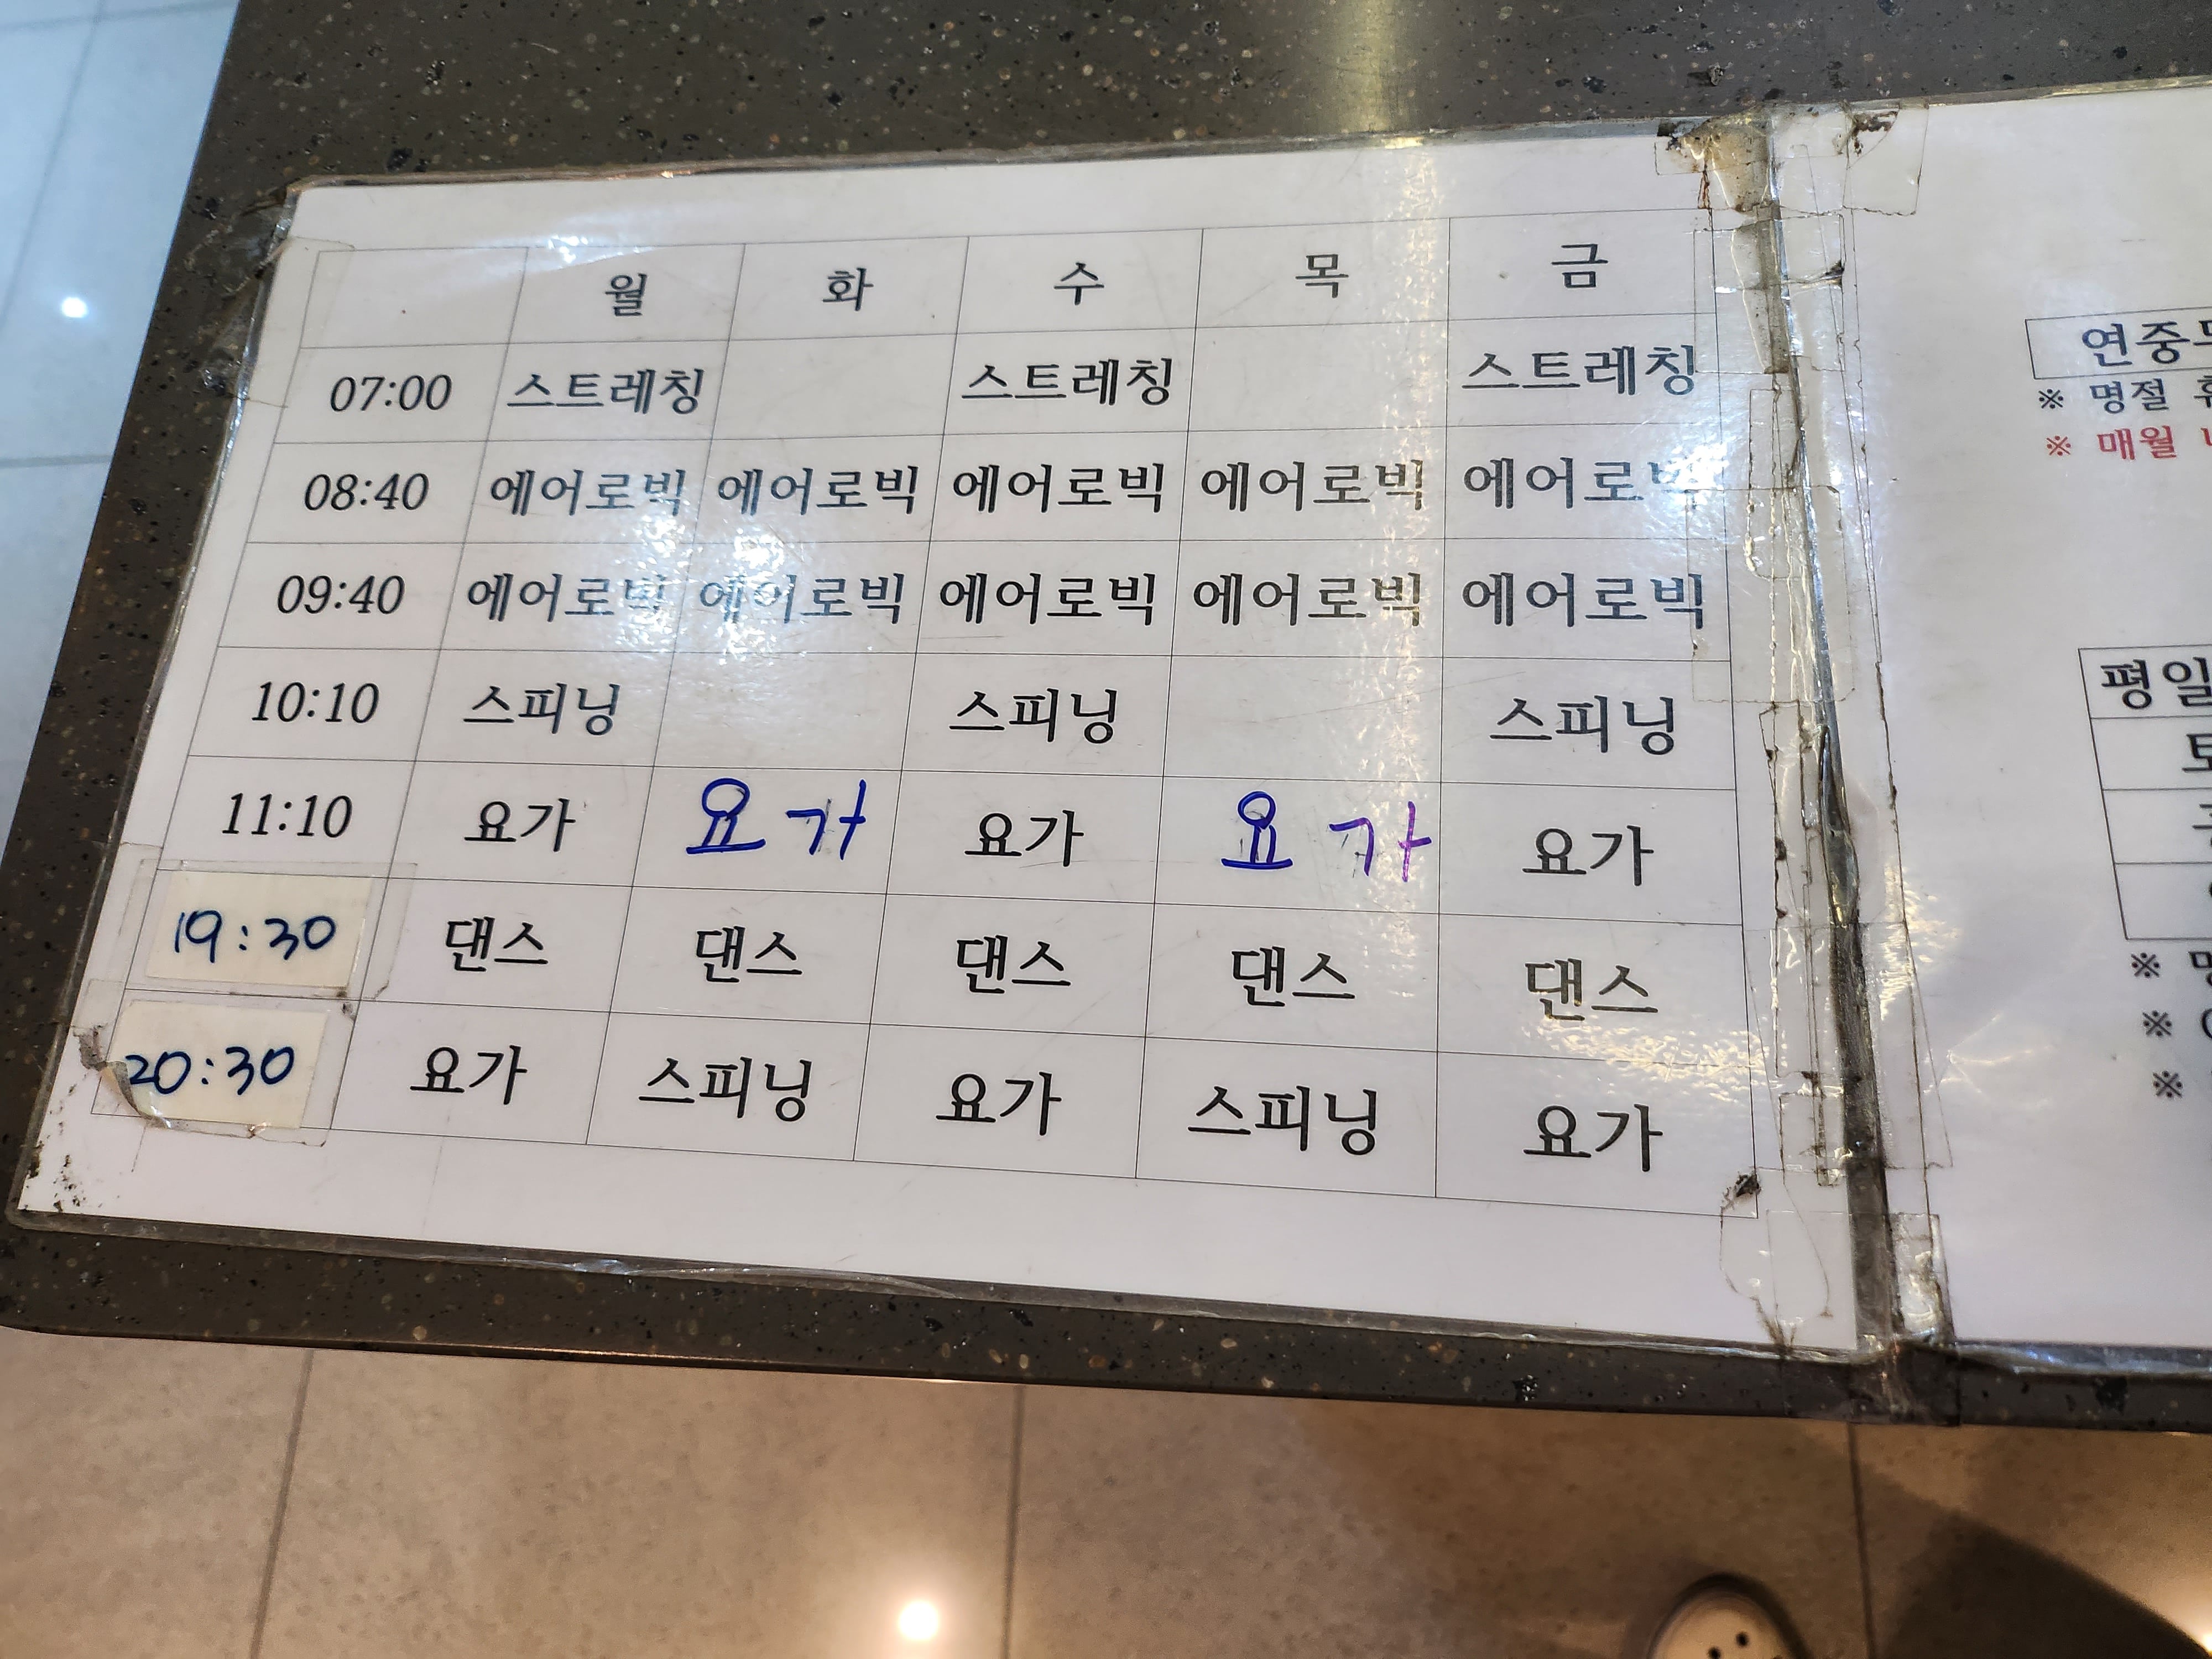 월 화 수 목 금
07:00 스트레칭 스트레칭 스트레칭
08:40 에어로빅 에어로빅 에어로빅 에어로빅 에어로빅
09:40 에어로빅 에어로빅 에어로빅 에어로빅 에어로빅
10:10 스피닝 스피닝 스피닝
11:10 요가 요가 요가 요가 요가
19:30 댄스 댄스 댄스 댄스 댄스
20:30 요가 스피닝 요가 스피닝 요가
연중
※ 명절
※ 매월
평일
※
※
※